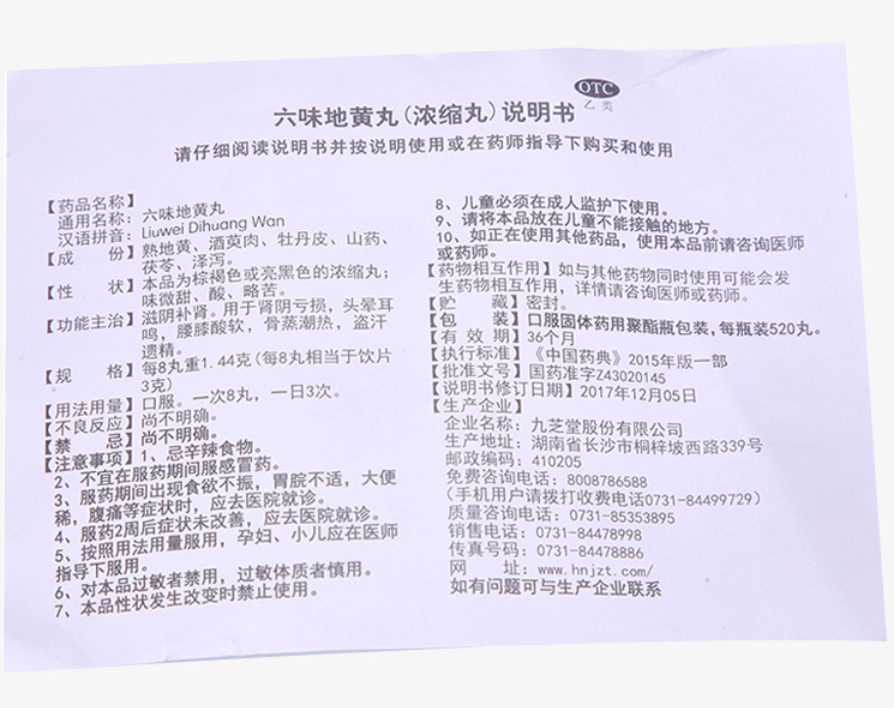 OTC
乙类
六味地黄丸(浓缩丸)说明书
请仔细阅读说明书并按说明使用或在药师指导下购买和使用
【药品名称】
通用名称：六味地黄丸
汉语拼音：Liuwei Dihuang Wan
【成　　份】熟地黄、酒萸肉、牡丹皮、山药、
茯苓、泽泻。
【性　　状】本品为棕褐色或亮黑色的浓缩丸；
味微甜、酸、略苦。
【功能主治】滋阴补肾。用于肾阴亏损，头晕耳
鸣，腰膝酸软，骨蒸潮热，盗汗
遗精。
【规　　格】每8丸重1.44克(每8丸相当于饮片
3克)
【用法用量】口服。一次8丸，一日3次。
【不良反应】尚不明确。
【禁　　忌】尚不明确。
【注意事项】1、忌辛辣食物。
2、不宜在服药期间服感冒药。
3、服药期间出现食欲不振，胃脘不适，大便
稀，腹痛等症状时，应去医院就诊。
4、服药2周后症状未改善，应去医院就诊。
5、按照用法用量服用，孕妇、小儿应在医师
指导下服用。
6、对本品过敏者禁用，过敏体质者慎用。
7、本品性状发生改变时禁止使用。
8、儿童必须在成人监护下使用。
9、请将本品放在儿童不能接触的地方。
10、如正在使用其他药品，使用本品前请咨询医师
或药师。
【药物相互作用】如与其他药物同时使用可能会发
生药物相互作用，详情请咨询医师或药师。
【贮　　藏】密封。
【包　　装】口服固体药用聚酯瓶包装，每瓶装520丸。
【有 效 期】36个月
【执行标准】《中国药典》2015年版一部
【批准文号】国药准字Z43020145
【说明书修订日期】2017年12月05日
【生产企业】
企业名称：九芝堂股份有限公司
生产地址：湖南省长沙市桐梓坡西路339号
邮政编码：410205
免费咨询电话：8008786588
(手机用户请拨打收费电话0731-84499729)
质量咨询电话：0731-85353895
销售电话：0731-84478998
传真号码：0731-84478886
网　　址：www.hnjzt.com/
如有问题可与生产企业联系